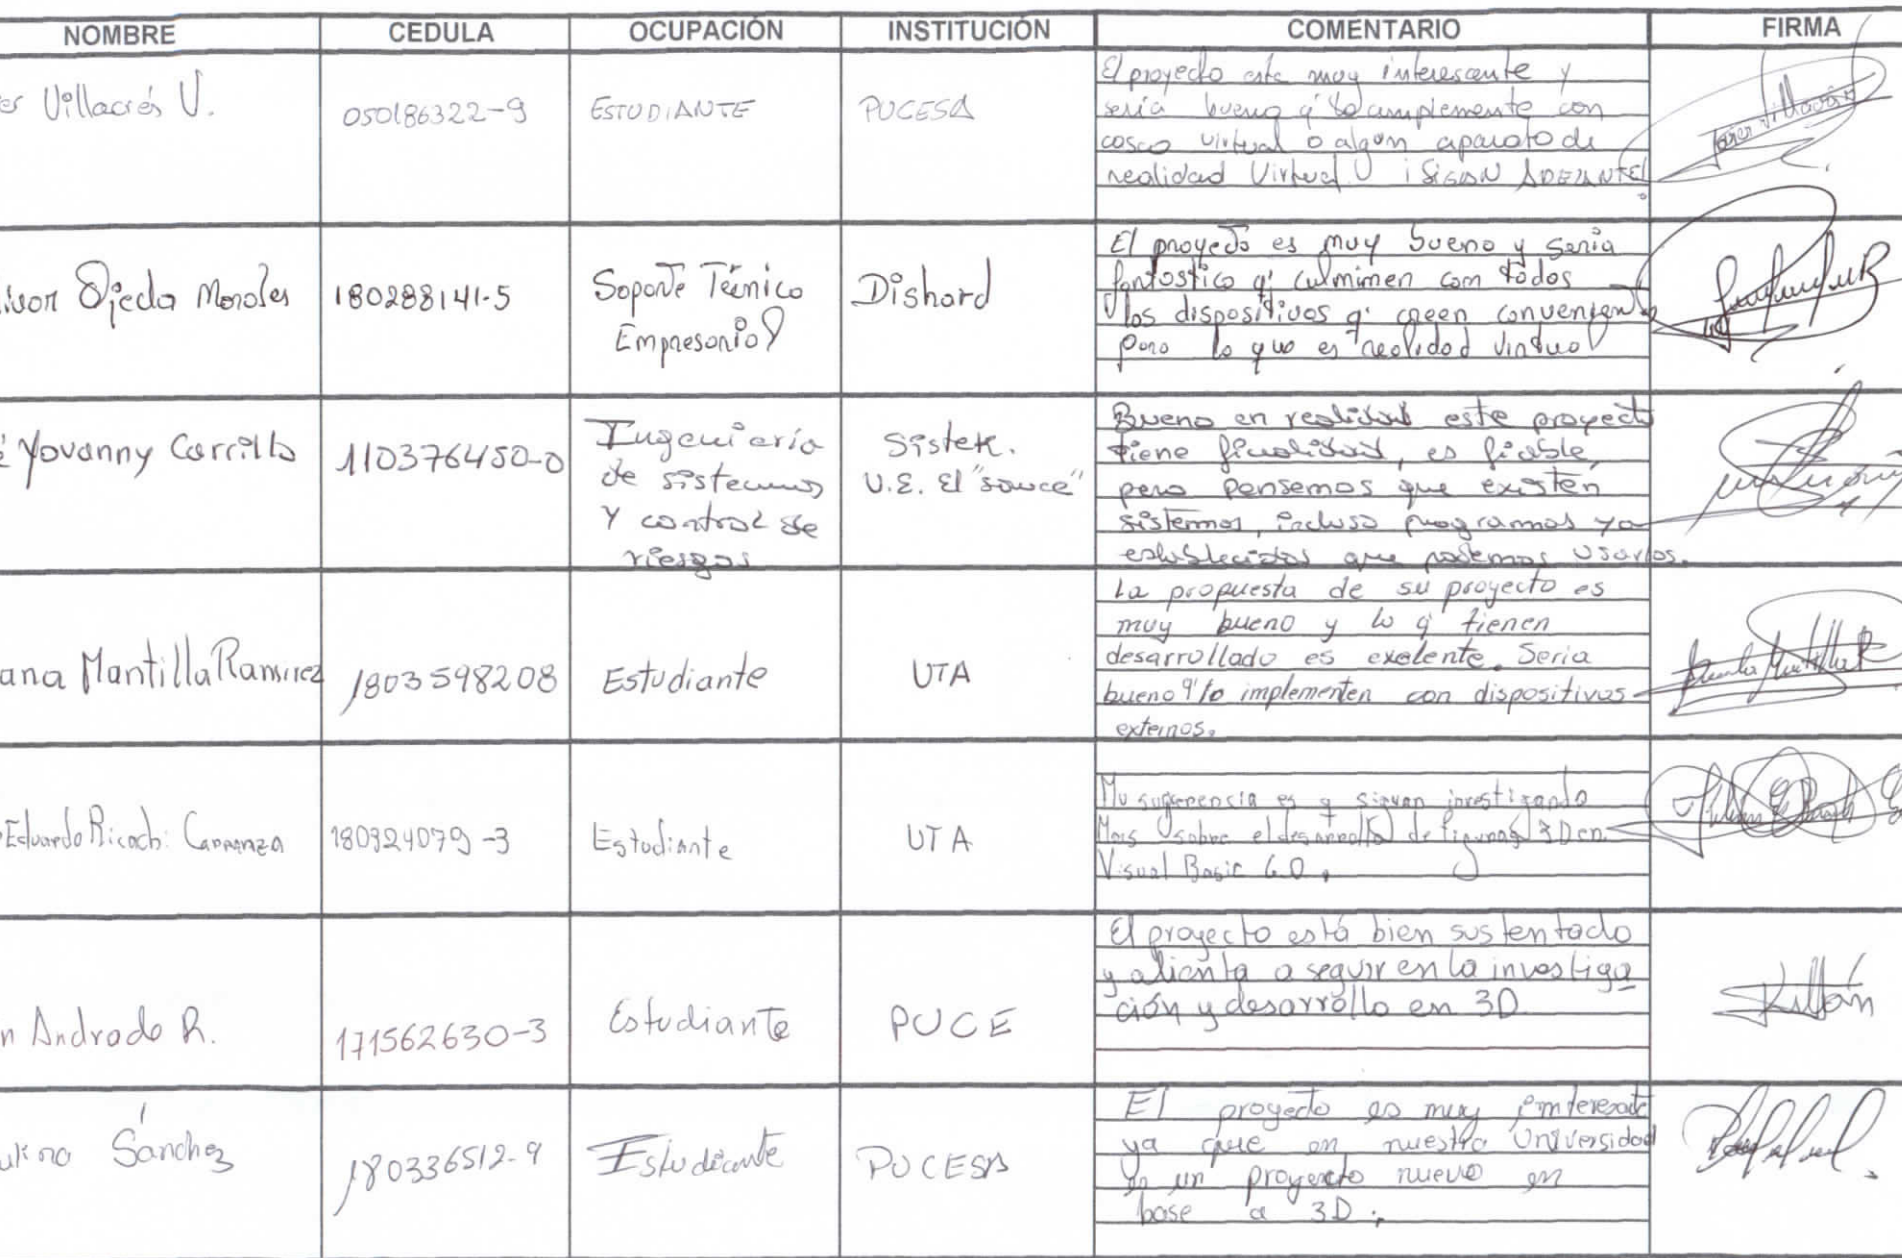 NOMBRE CEDULA OCUPACIÓN INSTITUCIÓN COMENTARIO FIRMA
es Villacrés V. 050186322-9 ESTUDIANTE PUCESA
El proyecto esta muy interesante y
seria bueno q' lo complemente con
cosco virtual o algun aparato de
realidad Virtual ¡SIGAN ADELANTE!
Javier Villacrés
Ojeda Morales 180288141-5 Soporte Técnico
Empresarial
Dishard
El proyecto es muy bueno y seria
fantastico q' culminen con todos
los dispositivos q' creen convenient
para lo que es realidad virtual
Yovanny Carrillo 110376450-0 Ingeniería
de sistemas
y control de
riesgos
Sistek.
U.E. El "sauce"
Bueno en realidad este proyecto
tiene finalidad, es fiable,
pero pensemos que existen
sistemas, incluso programas ya
establecidos que podemos usarlos.
ana Mantilla Ramirez 1803598208 Estudiante UTA
La propuesta de su proyecto es
muy bueno y lo q' tienen
desarrollado es exelente. Seria
bueno q' lo implementen con dispositivos
externos.
Eduardo Ricachi Carranza 180324079-3 Estudiante UTA
Mi sugerencia es q sigan investigando
Mas sobre el desarrollo de figuras 3D en
Visual Basic 6.0.
n Andrade R. 171562630-3 Estudiante PUCE
El proyecto está bien sustentado
y alienta a seguir en la investiga
ción y desarrollo en 3D
Sánchez 180336512-9 Estudiante PUCESA
El proyecto es muy interesate
ya que en nuestra Universidad
es un proyecto nuevo en
base a 3D.